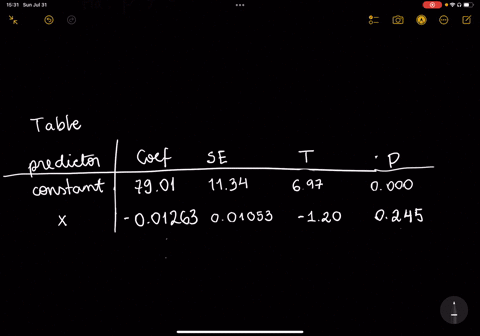 15:31 Sun Jul 31
Table
predictor Coef SE T P
constant 79.01 11.34 6.97 0.000
x -0.01263 0.01053 -1.20 0.245